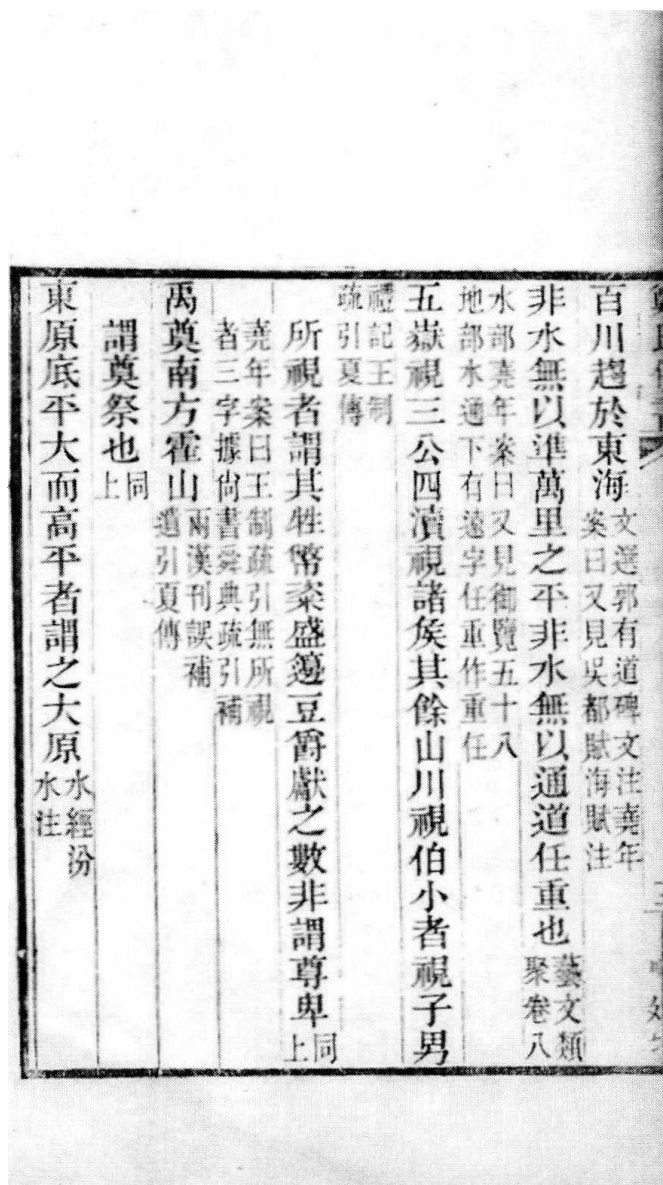 百川趨於東海文選郭有道碑文注堯年案曰又見吳都賦海賦注
非水無以準萬里之平非水無以通道任重也藝文類聚卷八
水部堯年案曰又見御覽五十八地部水通下有遠字任重作重任
五嶽視三公四瀆視諸矦其餘山川視伯小者視子男
禮記王制疏引夏傳
所視者謂其牲幣粢盛籩豆爵獻之數非謂尊卑同上
堯年案曰王制疏引無所視者三字據尙書舜典疏引補
禹奠南方霍山兩漢刊誤補遺引夏傳
謂奠祭也同上
東原底平大而高平者謂之大原水經汾水注